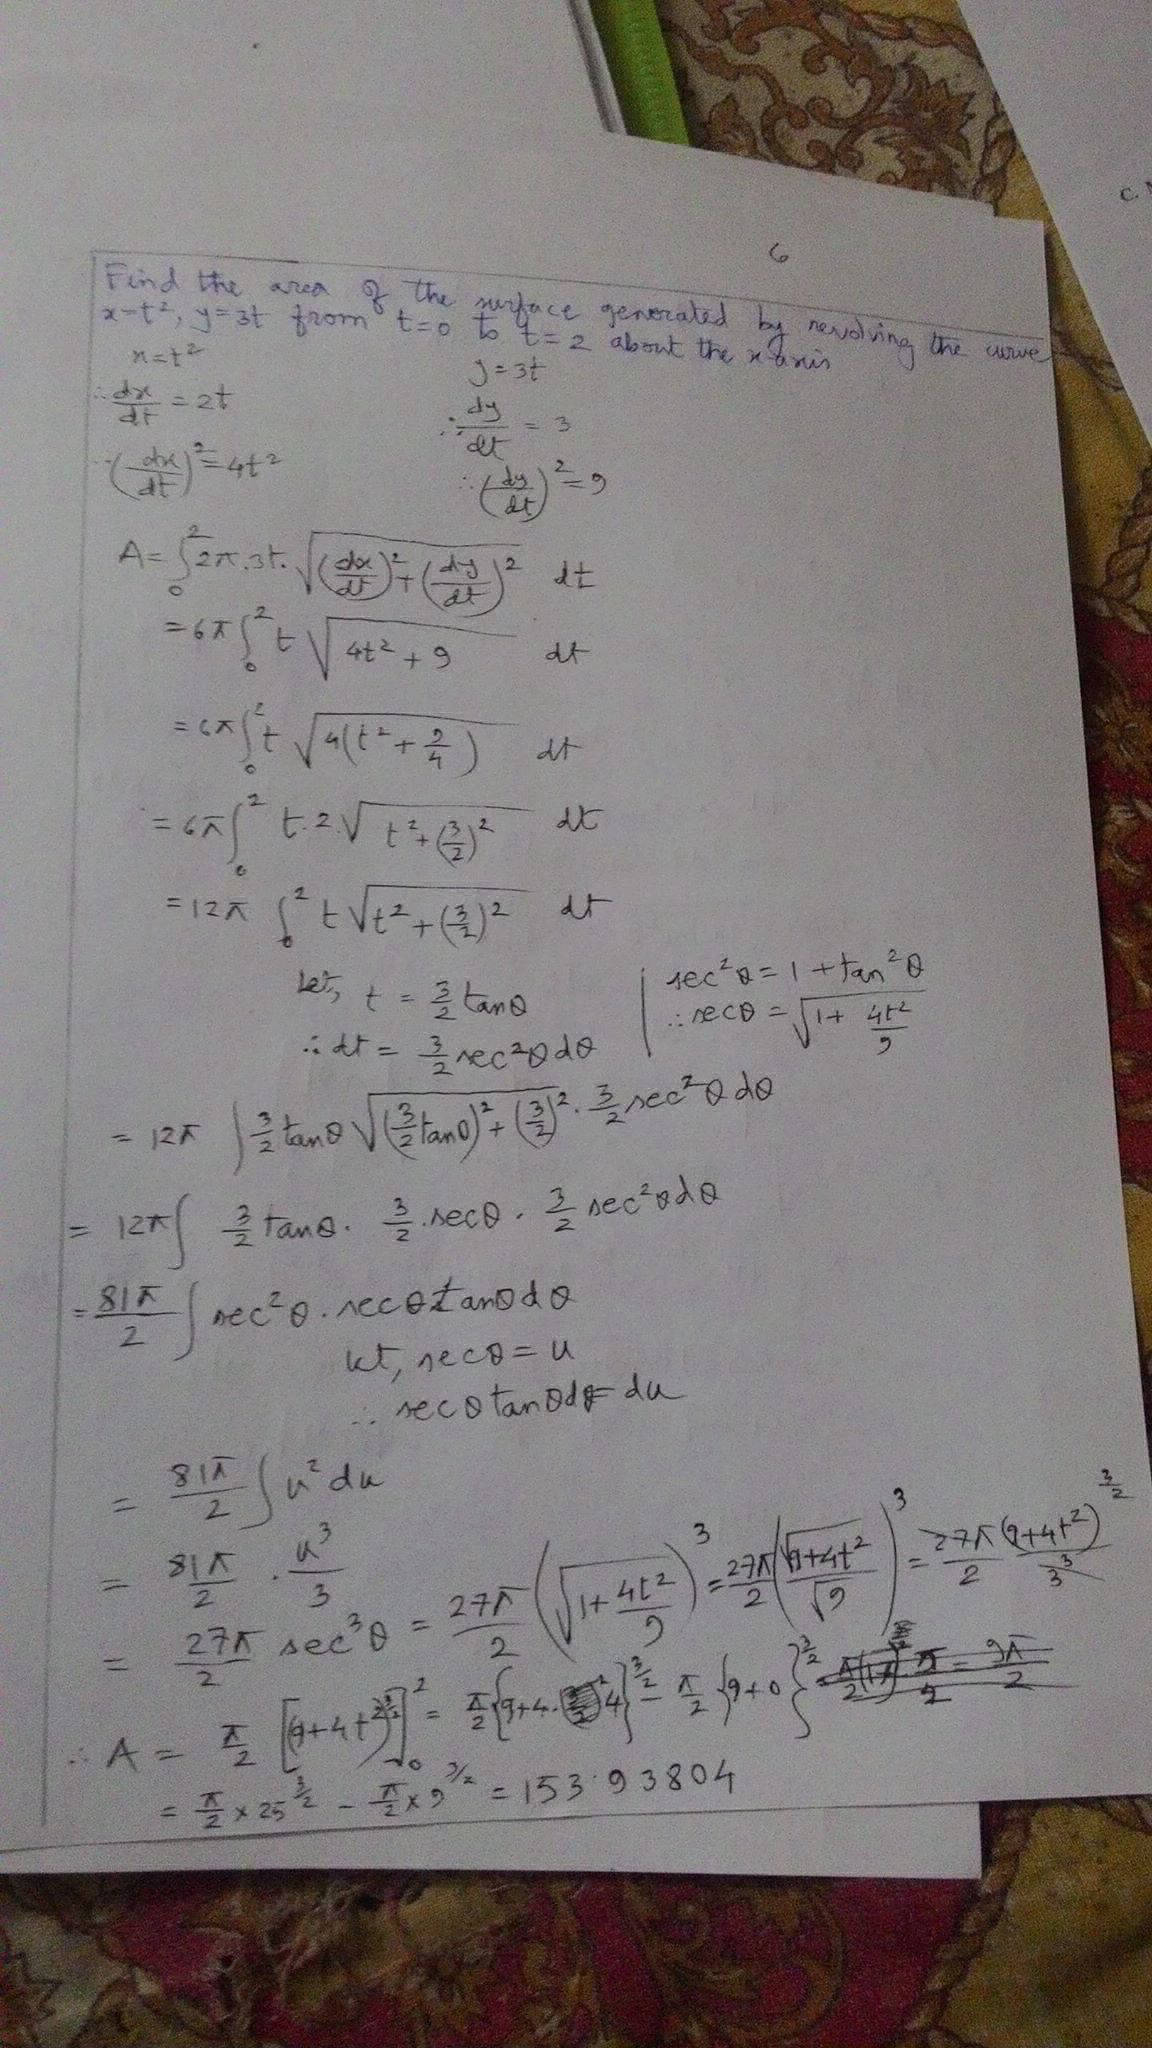 6
Find the area of the surface generated by revolving the curve
x=t², y=3t from t=0 to t=2 about the x axis
x=t² y=3t
∴ dx/dt = 2t ∴ dy/dt = 3
∴ (dx/dt)² = 4t² ∴ (dy/dt)² = 9
A = ∫₀² 2π.3t. √((dx/dt)² + (dy/dt)²) dt
= 6π ∫₀² t √(4t² + 9) dt
= 6π ∫₀² t √(4(t² + 9/4)) dt
= 6π ∫₀² t.2.√(t² + (3/2)²) dt
= 12π ∫₀² t √(t² + (3/2)²) dt
let, t = 3/2 tanθ | sec²θ = 1 + tan²θ
∴ dt = 3/2 sec²θ dθ | ∴ secθ = √(1 + 4t²/9)
= 12π ∫ 3/2 tanθ √((3/2 tanθ)² + (3/2)²) . 3/2 sec²θ dθ
= 12π ∫ 3/2 tanθ . 3/2 . secθ . 3/2 sec²θ dθ
= 81π/2 ∫ sec²θ . secθ tanθ dθ
let, secθ = u
∴ secθ tanθ dθ = du
= 81π/2 ∫ u² du
= 81π/2 . u³/3
= 27π/2 sec³θ = 27π/2 (√(1 + 4t²/9))³ = 27π/2 (√(9+4t²)/√9)³ = 27π/2 (9+4t²)^(3/2)/3³
∴ A = π/2 [(9+4t²)^(3/2)]₀² = π/2 {9+4.4}^(3/2) − π/2 {9+0}^(3/2)
= π/2 × 25^(3/2) − π/2 × 9^(3/2) = 153.93804
C.